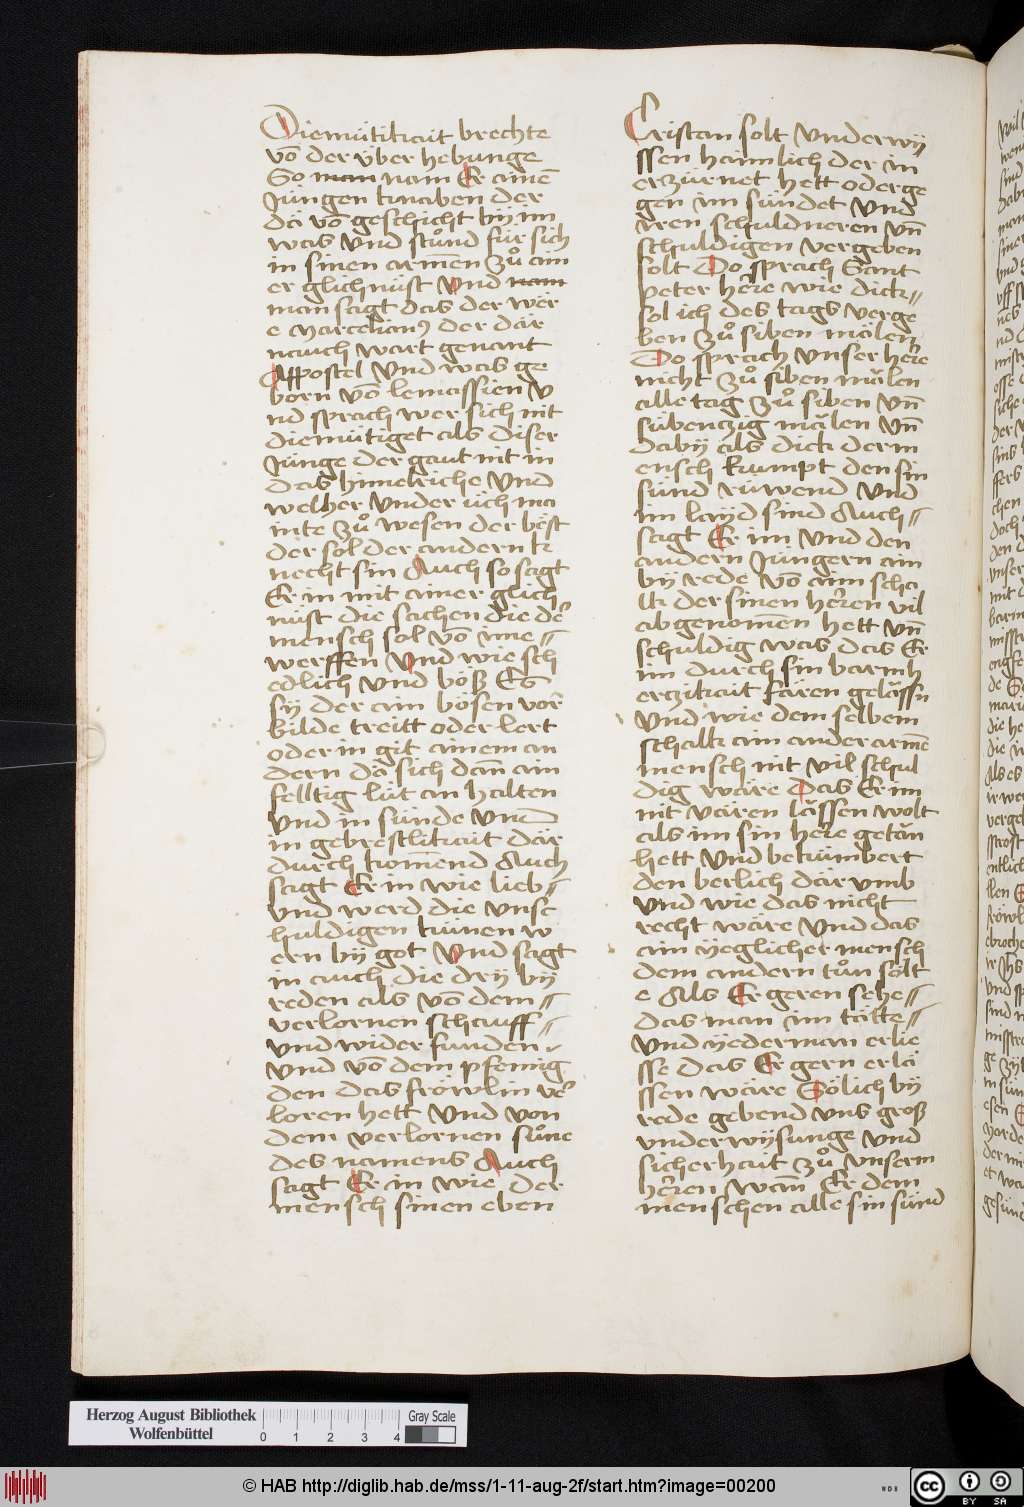 Diemütikait brechte
vō der über hebunge
So man nam Er ainē
Jüngen knaben der
dä vō geschicht bij im
was vnd stůnd für sich
in sinen armen zů ain
er glichnüst vnd nam
man sagt das der wër
e Marcelianꝰ der där
nauch wart genant
Appostel vnd was ge
born vō lemassien v
nd sprach wer sich nit
diemütiget als diser
Jünge der gaut nit in
das himelriche vnd
welher vnder üch ma
inte zů wesen der böst
der sol der andern k
necht sin Auch so sagt
Er in mit ainer glich
nüst die sachen die dˀ
mensch sol vō ime //
werffen vnd wie sch
edlich vnd böß Es
sy der ain bösen vor
bilde treitt oder lert
oder in git ainem an
dern dä sich dañ ain
felltig lüt an halten
vnd in sünde vnd
in gebrestlikait där
durch komend Auch
sagt Er in wie lieb //
vnd werd die vnsc
huldigen kinen w
ern bij got Vnd sagt
in auch die drij bij
reden als vō dem //
verlornen schauff //
vnd wider funden
vnd vō dem pfennig
den das fröwlin vˀ
loren hett vnd von
dem verlornen sůne
des namens Auch
sagt Er in wie der
mensch sinen eben
Cristan solt vnderwij
ssen haimlich der in
erzürnet hett oder ge
gen im sündet vnd
iren schuldneren vñ
schuldigen vergeben
solt Do sprach Sant
peter hěre wie dick //
sol ich des tags verge
ben zů siben mälen
Do sprach vnser hěre
nicht zů siben mälen
alle tag zů siben vñ
sübenczig mälen vñ
dabij als dick der m
ensch kumpt den sin
sünd rüwend vnd
im layd sind Auch //
sagt Er im vnd den
andern Jüngern ain
bij rede vō aim scha
lk der sinen herren vil
ab genomen hett vñ
schuldig was das Er
im durch sin barmh
erzikait faren gelässñ
vnd wie dem selbem
schalk ain ander armē
mensch nit vil schul
dig wäre das Er im
nit varen lässen wolt
als im sin hěre getän
hett vnd bekümbert
den berlich där vmb
vnd wie das nicht
recht wäre vnd das
ain iyeglicher mensch
dem andern tůn solt
e Als Er geren sehe //
das man im tätte //
vnd iyederman erlie
sse das Er gern erlä
ssen wäre Sölich bij
rede gebend vns groß
vnderwijsunge vnd
sicherhait zů vnserm
herren wañ Er dem
menschen alle sin sünd
Herzog August Bibliothek
Wolfenbüttel
Gray Scale
0 1 2 3 4
© HAB http://diglib.hab.de/mss/1-11-aug-2f/start.htm?image=00200
WDB
cc BY SA